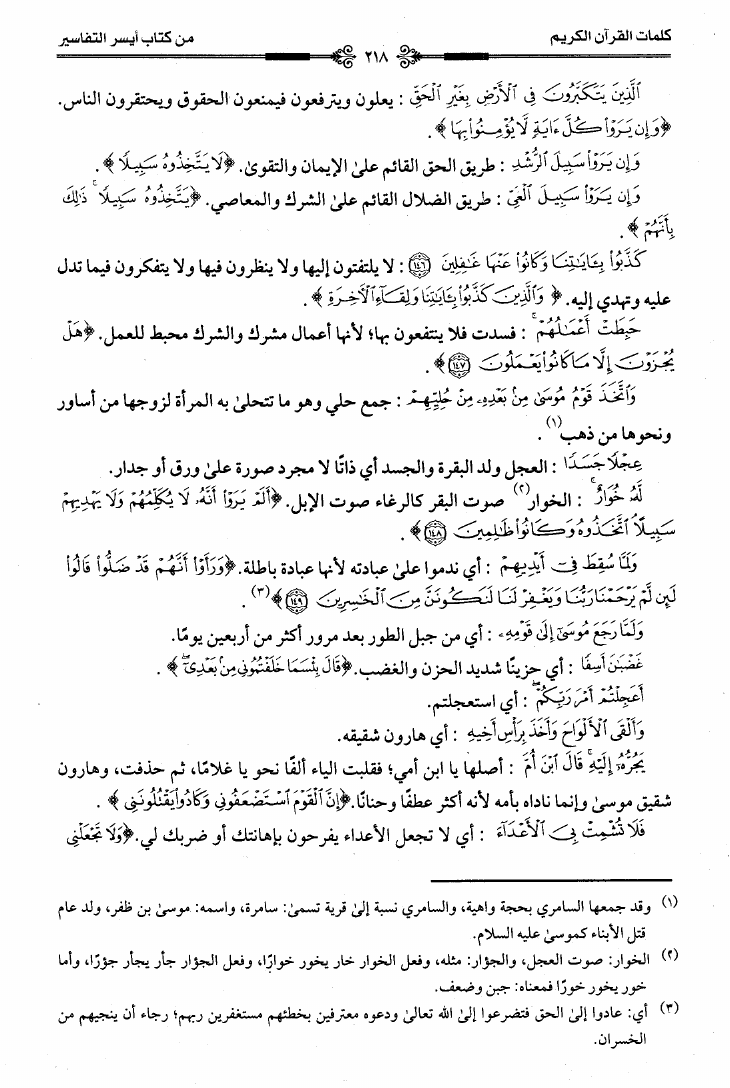 كلمات القرآن الكريم
من كتاب أيسر التفاسير
٢١٨
الَّذِينَ يَتَكَبَّرُونَ فِي الْأَرْضِ بِغَيْرِ الْحَقِّ : يعلون ويترفعون فيمنعون الحقوق ويحتقرون الناس.
﴿وَإِن يَرَوْا كُلَّ ءَايَةٍ لَّا يُؤْمِنُوا بِهَا﴾ .
وَإِن يَرَوْا سَبِيلَ الرُّشْدِ : طريق الحق القائم علىٰ الإيمان والتقوىٰ. ﴿لَا يَتَّخِذُوهُ سَبِيلًا﴾ .
وَإِن يَرَوْا سَبِيلَ الْغَيِّ : طريق الضلال القائم علىٰ الشرك والمعاصي. ﴿يَتَّخِذُوهُ سَبِيلًا ۚ ذَٰلِكَ
بِأَنَّهُمْ﴾ .
كَذَّبُوا بِـَٔايَـٰتِنَا وَكَانُوا عَنْهَا غَـٰفِلِينَ ﴿١٤٦﴾ : لا يلتفتون إليها ولا ينظرون فيها ولا يتفكرون فيما تدل
عليه وتهدي إليه. ﴿ وَالَّذِينَ كَذَّبُوا بِـَٔايَـٰتِنَا وَلِقَآءِ الْـَٔاخِرَةِ ﴾ .
حَبِطَتْ أَعْمَـٰلُهُمْ ۚ : فسدت فلا ينتفعون بها؛ لأنها أعمال مشرك والشرك محبط للعمل. ﴿هَلْ
يُجْزَوْنَ إِلَّا مَا كَانُوا يَعْمَلُونَ ﴿١٤٧﴾﴾ .
وَاتَّخَذَ قَوْمُ مُوسَىٰ مِنۢ بَعْدِهِۦ مِنْ حُلِيِّهِمْ : جمع حلي وهو ما تتحلىٰ به المرأة لزوجها من أساور
ونحوها من ذهب(١) .
عِجْلًا جَسَدًا : العجل ولد البقرة والجسد أي ذاتًا لا مجرد صورة علىٰ ورق أو جدار.
لَّهُۥ خُوَارٌ ۚ : الخوار(٢) صوت البقر كالرغاء صوت الإبل. ﴿أَلَمْ يَرَوْا أَنَّهُۥ لَا يُكَلِّمُهُمْ وَلَا يَهْدِيهِمْ
سَبِيلًا ۘ اتَّخَذُوهُ وَكَانُوا ظَـٰلِمِينَ ﴿١٤٨﴾﴾ .
وَلَمَّا سُقِطَ فِي أَيْدِيهِمْ : أي ندموا علىٰ عبادته لأنها عبادة باطلة. ﴿وَرَأَوْا أَنَّهُمْ قَدْ ضَلُّوا قَالُوا
لَئِن لَّمْ يَرْحَمْنَا رَبُّنَا وَيَغْفِرْ لَنَا لَنَكُونَنَّ مِنَ الْخَـٰسِرِينَ ﴿١٤٩﴾﴾(٣) .
وَلَمَّا رَجَعَ مُوسَىٰ إِلَىٰ قَوْمِهِۦ : أي من جبل الطور بعد مرور أكثر من أربعين يومًا.
غَضْبَـٰنَ أَسِفًا : أي حزينًا شديد الحزن والغضب. ﴿قَالَ بِئْسَمَا خَلَفْتُمُونِي مِنۢ بَعْدِيٓ ۖ﴾ .
أَعَجِلْتُمْ أَمْرَ رَبِّكُمْ ۖ : أي استعجلتم.
وَأَلْقَى الْأَلْوَاحَ وَأَخَذَ بِرَأْسِ أَخِيهِ : أي هارون شقيقه.
يَجُرُّهُۥٓ إِلَيْهِ ۚ قَالَ ابْنَ أُمَّ : أصلها يا ابن أمي؛ فقلبت الياء ألفًا نحو يا غلامًا، ثم حذفت، وهارون
شقيق موسىٰ وإنما ناداه بأمه لأنه أكثر عطفًا وحنانًا. ﴿إِنَّ الْقَوْمَ اسْتَضْعَفُونِي وَكَادُوا يَقْتُلُونَنِي ﴾ .
فَلَا تُشْمِتْ بِيَ الْأَعْدَآءَ : أي لا تجعل الأعداء يفرحون بإهانتك أو ضربك لي. ﴿وَلَا تَجْعَلْنِي
(١) وقد جمعها السامري بحجة واهية، والسامري نسبة إلىٰ قرية تسمىٰ: سامرة، واسمه: موسىٰ بن ظفر، ولد عام
قتل الأبناء كموسىٰ عليه السلام.
(٢) الخوار: صوت العجل، والجؤار: مثله، وفعل الخوار خار يخور خوارًا، وفعل الجؤار جأر يجأر جؤرًا، وأما
خور يخور خورًا فمعناه: جبن وضعف.
(٣) أي: عادوا إلىٰ الحق فتضرعوا إلىٰ الله تعالىٰ ودعوه معترفين بخطئهم مستغفرين ربهم؛ رجاء أن ينجيهم من
الخسران.